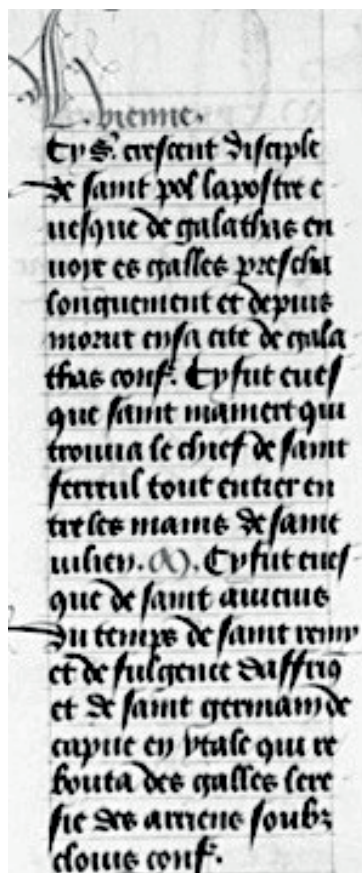 L. vienne.
Cy S. crescent disciple
de saint pol lapostre e
uesque de galathas en
uoye es galles prescha
longuement et depuis
morut en sa cite de gala
thas conf. Cy fut eues
que saint mamert qui
trouua le chief de saint
ferreul tout entier en
tre les mains de saint
iulien. A). Cy fut eues
que de saint auicius
Du temps de saint remy
et de fulgence daffriq
et de saint germain de
capue en ytale qui re
bouta des galles lere
sie des arriens soubz
clouis conf.